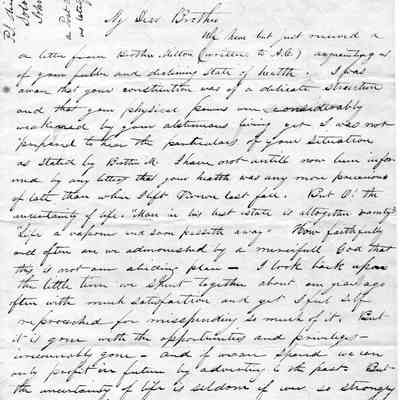 My Dear Brother
We have but just received a
a letter from Brother Milton (written to A.C.) acquainting us
of your feeble and declining state of health. I was
aware that your constitution was of a delicate structure
and that your physical powers were considerably
weakened by your abstemious living yet I was not
prepared to hear the particulars of your situation
as stated by Brother M. I have not untill now been infor-
med by any letter that your health was any more precarious
of late than when I left last fall. But O! the
uncertainty of life. "Man in his best state is altogether vanity"
"Life a vapour and soon passeth away" How faithfully
and often are we admonished by a mercifull God that
this is not our abiding place — I look back upon
the little time we spent together about one year ago
often with much satisfaction and yet I feel self
reproached for misspending so much of it. But
it is gone with the opportunities and privileges —
irrecoverably gone — and if we can
only profit in future by adverting to the past. But
the uncertainty of life is seldom if ever so strongly